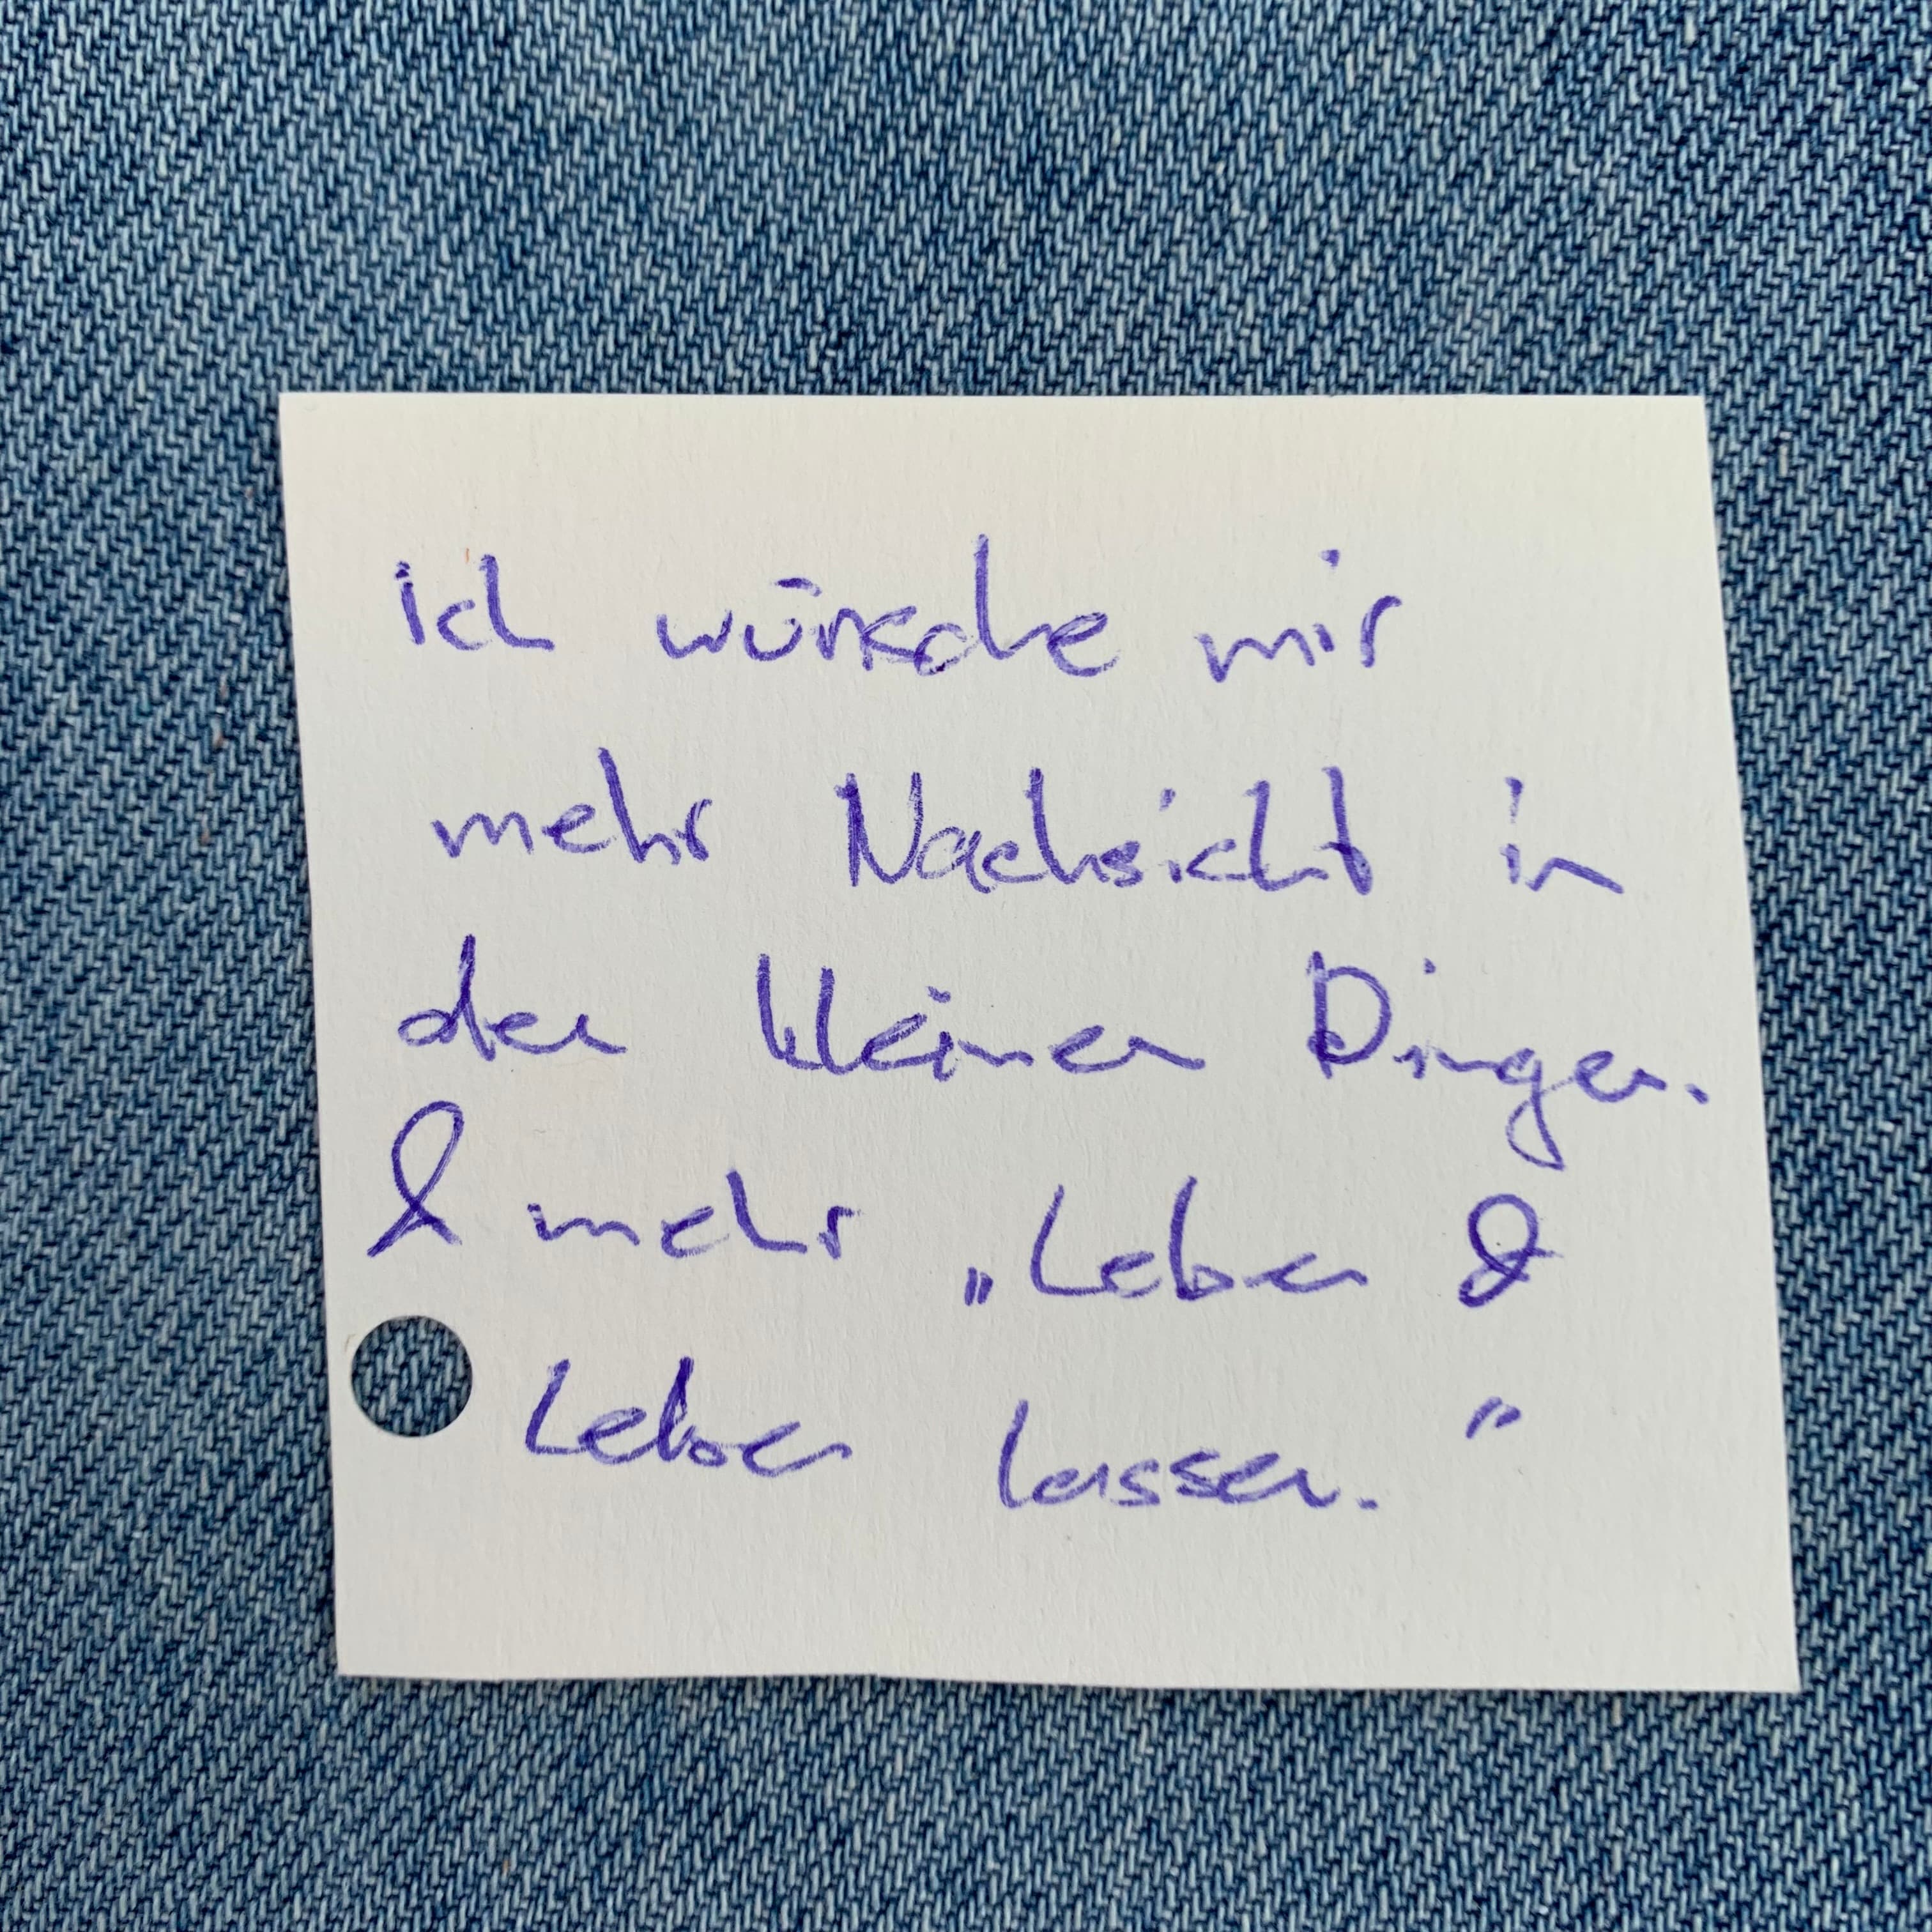 Ich wünsche mir
mehr Nachsicht in
den kleinen Dingen.
& mehr „Leben &
Leben lassen."